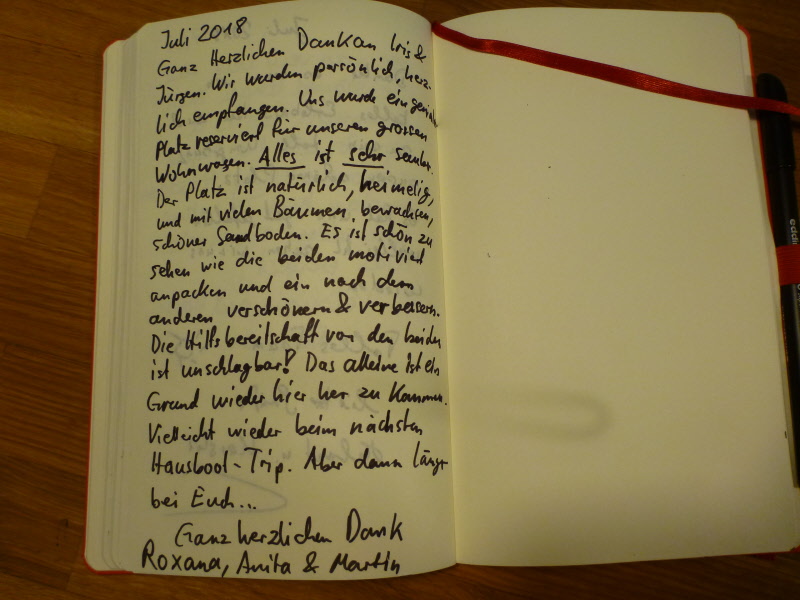 Juli 2018
Ganz Herzlichen Dank an Iris &
Jürgen. Wir wurden persönlich, herz-
lich empfangen. Uns wurde ein genialer
Platz reserviert für unseren grossen
Wohnwagen. Alles ist sehr sauber.
Der Platz ist natürlich, heimelig,
und mit vielen Bäumen, bewachsen,
schöner Sandboden. Es ist schön zu
sehen wie die beiden motiviert
anpacken und ein nach dem
anderen verschönern & verbessern.
Die Hilfsbereitschaft von den beiden
ist unschlagbar! Das alleine ist ein
Grund wieder hier her zu kommen.
Vielleicht wieder beim nächsten
Hausboot-Trip. Aber dann länger
bei Euch...
Ganz herzlichen Dank
Roxana, Anita & Martin
edding